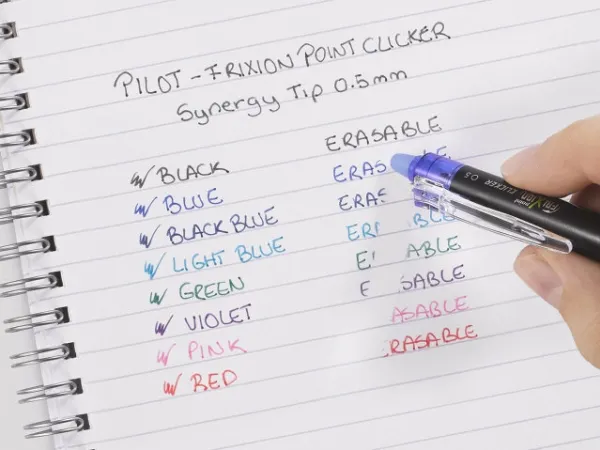 PILOT - FRIXION POINT CLICKER
Synergy Tip 0.5mm
BLACK ERASABLE
BLUE ERAS E
BLACK BLUE ERAS
LIGHT BLUE ER BLE
GREEN E ABLE
VIOLET E SABLE
PINK ASABLE
RED RASABLE
point
FRIXION CLICKER 0.5